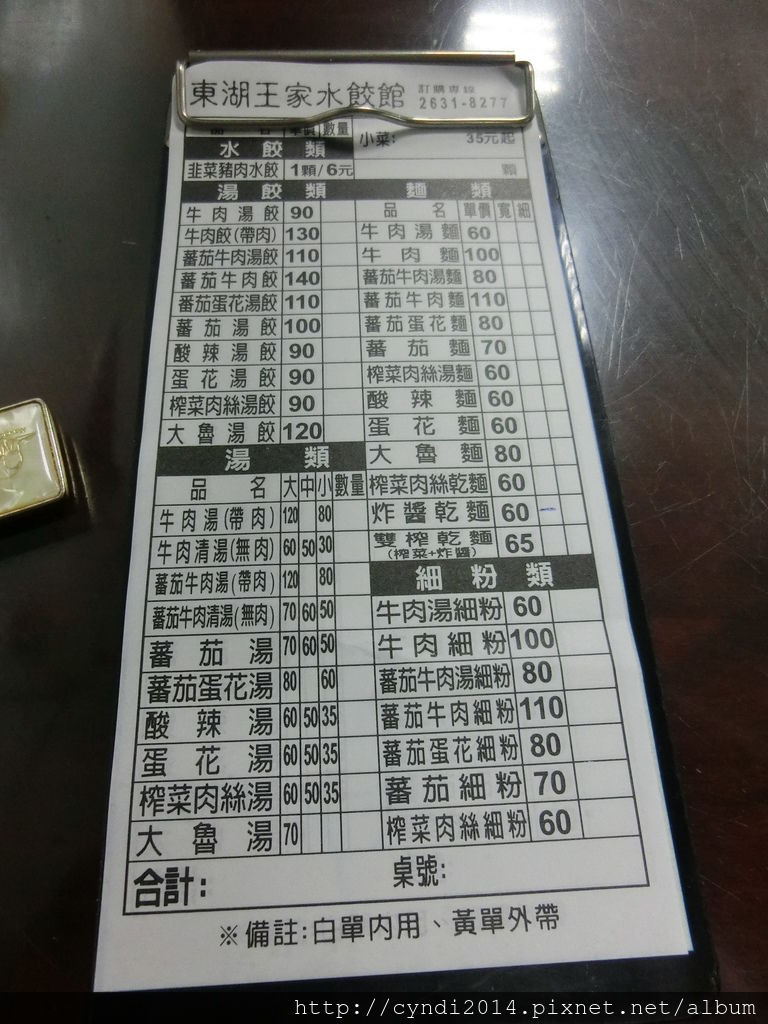 東湖王家水餃館 訂購專線
2631-8277
品名 單價 數量
小菜: 35元起
水餃類
韭菜豬肉水餃 1顆/6元 顆
湯餃類
牛肉湯餃 90
牛肉餃(帶肉) 130
蕃茄牛肉湯餃 110
蕃茄牛肉餃 140
番茄蛋花湯餃 110
蕃茄湯餃 100
酸辣湯餃 90
蛋花湯餃 90
榨菜肉絲湯餃 90
大魯湯餃 120
湯類
品名 大 中 小 數量
牛肉湯(帶肉) 120 80
牛肉清湯(無肉) 60 50 30
蕃茄牛肉湯(帶肉) 120 80
蕃茄牛肉清湯(無肉) 70 60 50
蕃茄湯 70 60 50
蕃茄蛋花湯 80 60
酸辣湯 60 50 35
蛋花湯 60 50 35
榨菜肉絲湯 60 50 35
大魯湯 70
麵類
品名 單價 寬 細
牛肉湯麵 60
牛肉麵 100
蕃茄牛肉湯麵 80
蕃茄牛肉麵 110
蕃茄蛋花麵 80
蕃茄麵 70
榨菜肉絲湯麵 60
酸辣麵 60
蛋花麵 60
大魯麵 80
榨菜肉絲乾麵 60
炸醬乾麵 60
雙榨乾麵 65
(榨菜+炸醬)
細粉類
牛肉湯細粉 60
牛肉細粉 100
蕃茄牛肉湯細粉 80
蕃茄牛肉細粉 110
蕃茄蛋花細粉 80
蕃茄細粉 70
榨菜肉絲細粉 60
合計: 桌號:
※備註:白單內用、黃單外帶
http://cyndi2014.pixnet.net/album